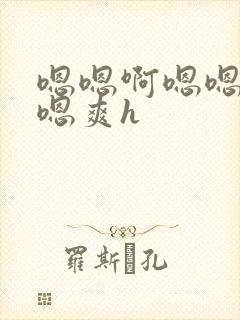 嗯嗯啊嗯嗯
嗯爽h
羅斯孔